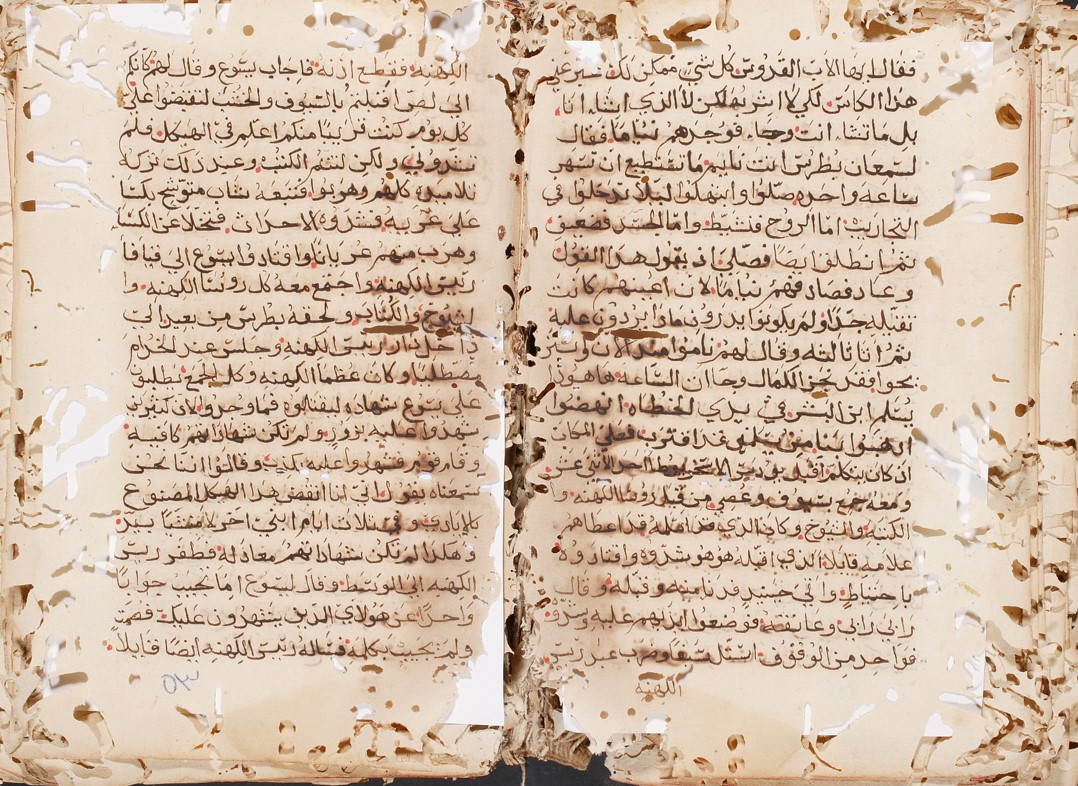 فقال ايها الاب القدوس كل شي ممكن لك تتيير عني
هذا الكاس لكي لا اشربه لكن لا الذي اشا انا
بل ما تشا انت وجا فوجدهم نياما فقال
لسمعان بطرس انت نايم ما تستطيع ان تسهر
ساعه واحده صلوا وابتهلوا ليلا تدخلوا في
التجاريب اما الروح فنشيط واما الجسد فضعيف
ثم انطلق ايضا فصلي اذ يقول هذا القول
وعاد فصادفهم نياما لان اعينهم كانت
ثقيله جدا ولم يكونوا يدرون بما يردون عليه
ثم اتا ثالثه وقال لهم ناموا منذ الان
فقد نجز الكمال وحان الساعه هاهوذا
يسلم ابن البشر في يدي الخطاه انهضوا
من يسلمني قد اقترب في المكان
اذ كان يتكلم اقبل يهوذا الاسخريوطي احد الاثنى عشر
ومعه جمع بسيوف وعصي من قبل روسا الكهنه وا
الكتبه والشيوخ وكان الذي اسلمه قد اعطاهم
علامه قايلا الذي اقبله هو هو شدوه واقتادوه
باحتياط واتي حينيذ فدنا منه وقبله وقال
رابي رابي وعانقه فوضعوا ايديهم عليه
فواحد من الوقوف استل سيفا وضرب عبد ريس
الكهنه
الكهنه فقطع اذنه فاجاب يسوع وقال لهم كانكم
الي لص اقبلتم بالسيوف والخشب لتقبضوا علي
كل يوم كنت قريبا منكم اعلم في الهيكل فلم
تشدوني ولكن لتتم الكتب وعند ذلك تركه
تلاميذه كلهم وهربوا فتبعه شاب متوشح بكسا
علي عريه فشدوه الاحداث فتخلا عن الكسا
وهرب منهم عريانا واقتادوا يسوع الي قيافا
ريس الكهنه واجتمع معه كل روسا الكهنه وا
لشيوخ والكتاب ولحقه بطرس من بعيد الي
داخل دار ريس الكهنه وجلس عند الخدام
مصطليا وكان عظما الكهنه وكل الجمع يطلبون
علي يسوع شهاده ليقتلوه فما وجدوا لان كثيرين
شهدوا عليه بزور ولم تكن شهاداتهم كافيه
وقام قوم فشهدوا عليه بكذب وقالوا اننا نحن
سمعناه يقول اني انا انقض هذا الهيكل المصنوع
بالايادي وفي ثلاث ايام ابني اخر لا مبتنيا بيد
وهكذا لم تكن شهاداتهم معادله فطفر ريس
الكهنه الي الوسط وقال ليسوع اما تجيب جوابا
واحدا عن هولاي الذين يشهدون عليك فصمت
ولم يجيب بكلمه فساله ريس الكهنه ايضا قايلا
٥٣